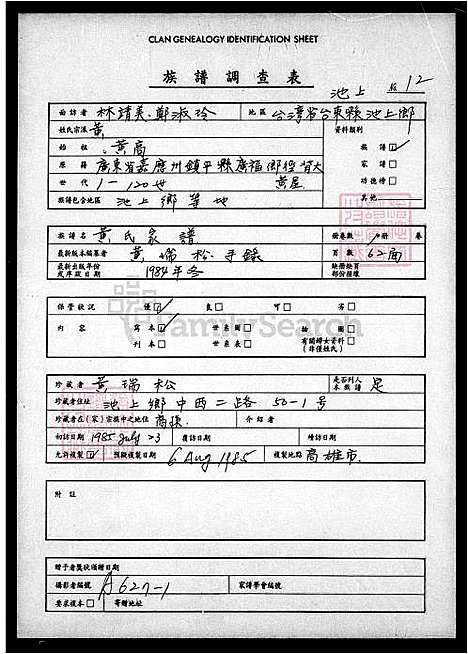 CLAN GENEALOGY IDENTIFICATION SHEET
族譜調查表
池上 12
面訪者 林靖美、鄭淑玲 地區 台灣省台東縣池上鄉
姓氏宗派 黃 資料類別
始祖 黃 族譜 ☑
原籍 廣東省嘉應州鎮平縣廣福鄉 黃屋 家譜 □
世代 1-120世 功德榜 □
族譜包含地區 池上鄉等地 其他
族譜名 黃氏家譜 冊卷數 1 冊 卷
最新版本編纂者 黃瑞松手錄 頁數 62面
最新出版年份或序跋日期 1984年冬 缺冊缺頁部份註壞
保管狀況 優 ☑ 良 □ 可 □ 劣 □
內容 寫本 ☑ 世系圖 □ 插圖 □
刊本 □ 世系表 □ 有關婦女資料 □ (非僅姓氏)
FamilySearch
珍藏者 黃瑞松 是否列入本族譜 是
珍藏者住址 池上鄉中西二路50-1號
珍藏者在(家)宗族中之地位 裔孫 介紹者
初訪日期 1985 July 23 複訪日期 續訪日期
允許複製 ☑ 預擬複製日期 6 Aug 1985 複製地點 高雄市
附註
贈予者獎狀頒贈日期
攝影者編號 A627-1 家譜學會編號
要求複本 □ 寄贈地址